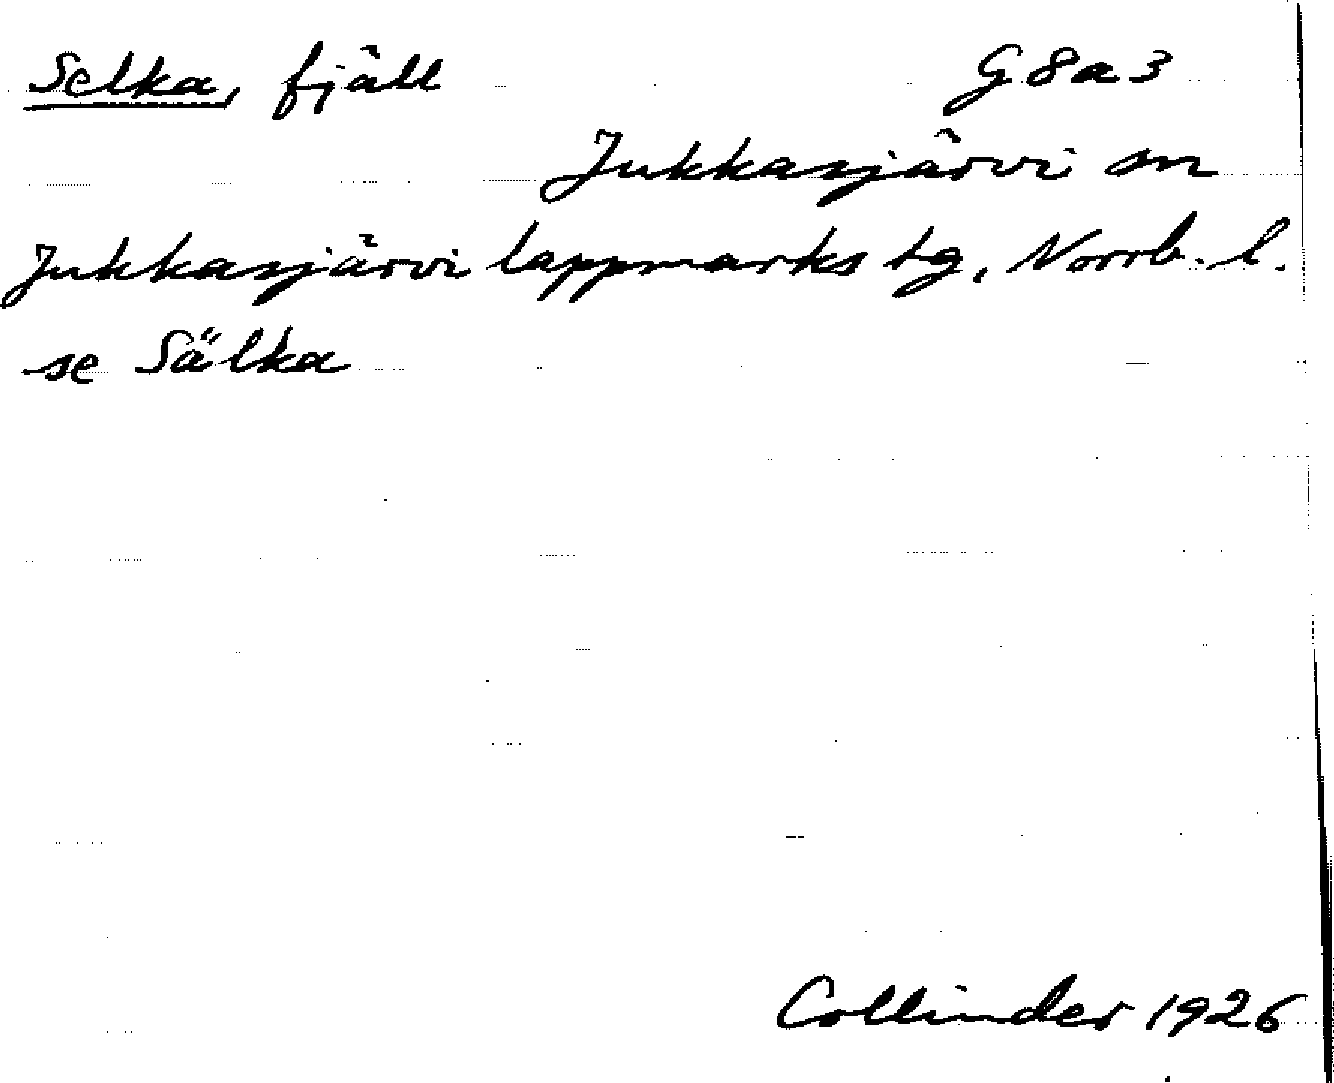 Selka, fjäll G8a3
Jukkasjärvi sn
Jukkasjärvi lappmarks tg, Norrb. l.
se Sälka
Collinder 1926